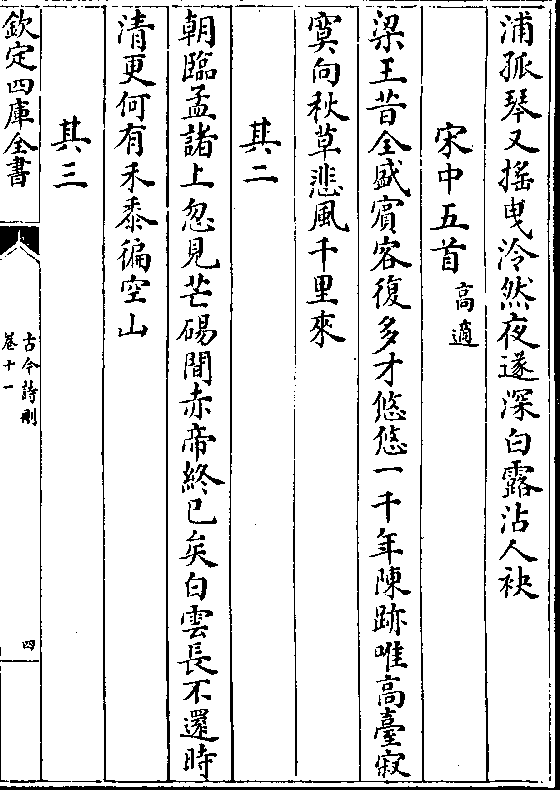 浦孤琴又搖曳泠然夜遂深白露沾人袂
宋中五首 高適
梁王昔全盛賓客復多才悠悠一千年陳跡唯高臺寂
寞向秋草悲風千里來
其二
朝臨孟諸上忽見芒碭間赤帝終已矣白雲長不還時
清更何有禾黍徧空山
其三
欽定四庫全書
古今詩刪
卷十一
四